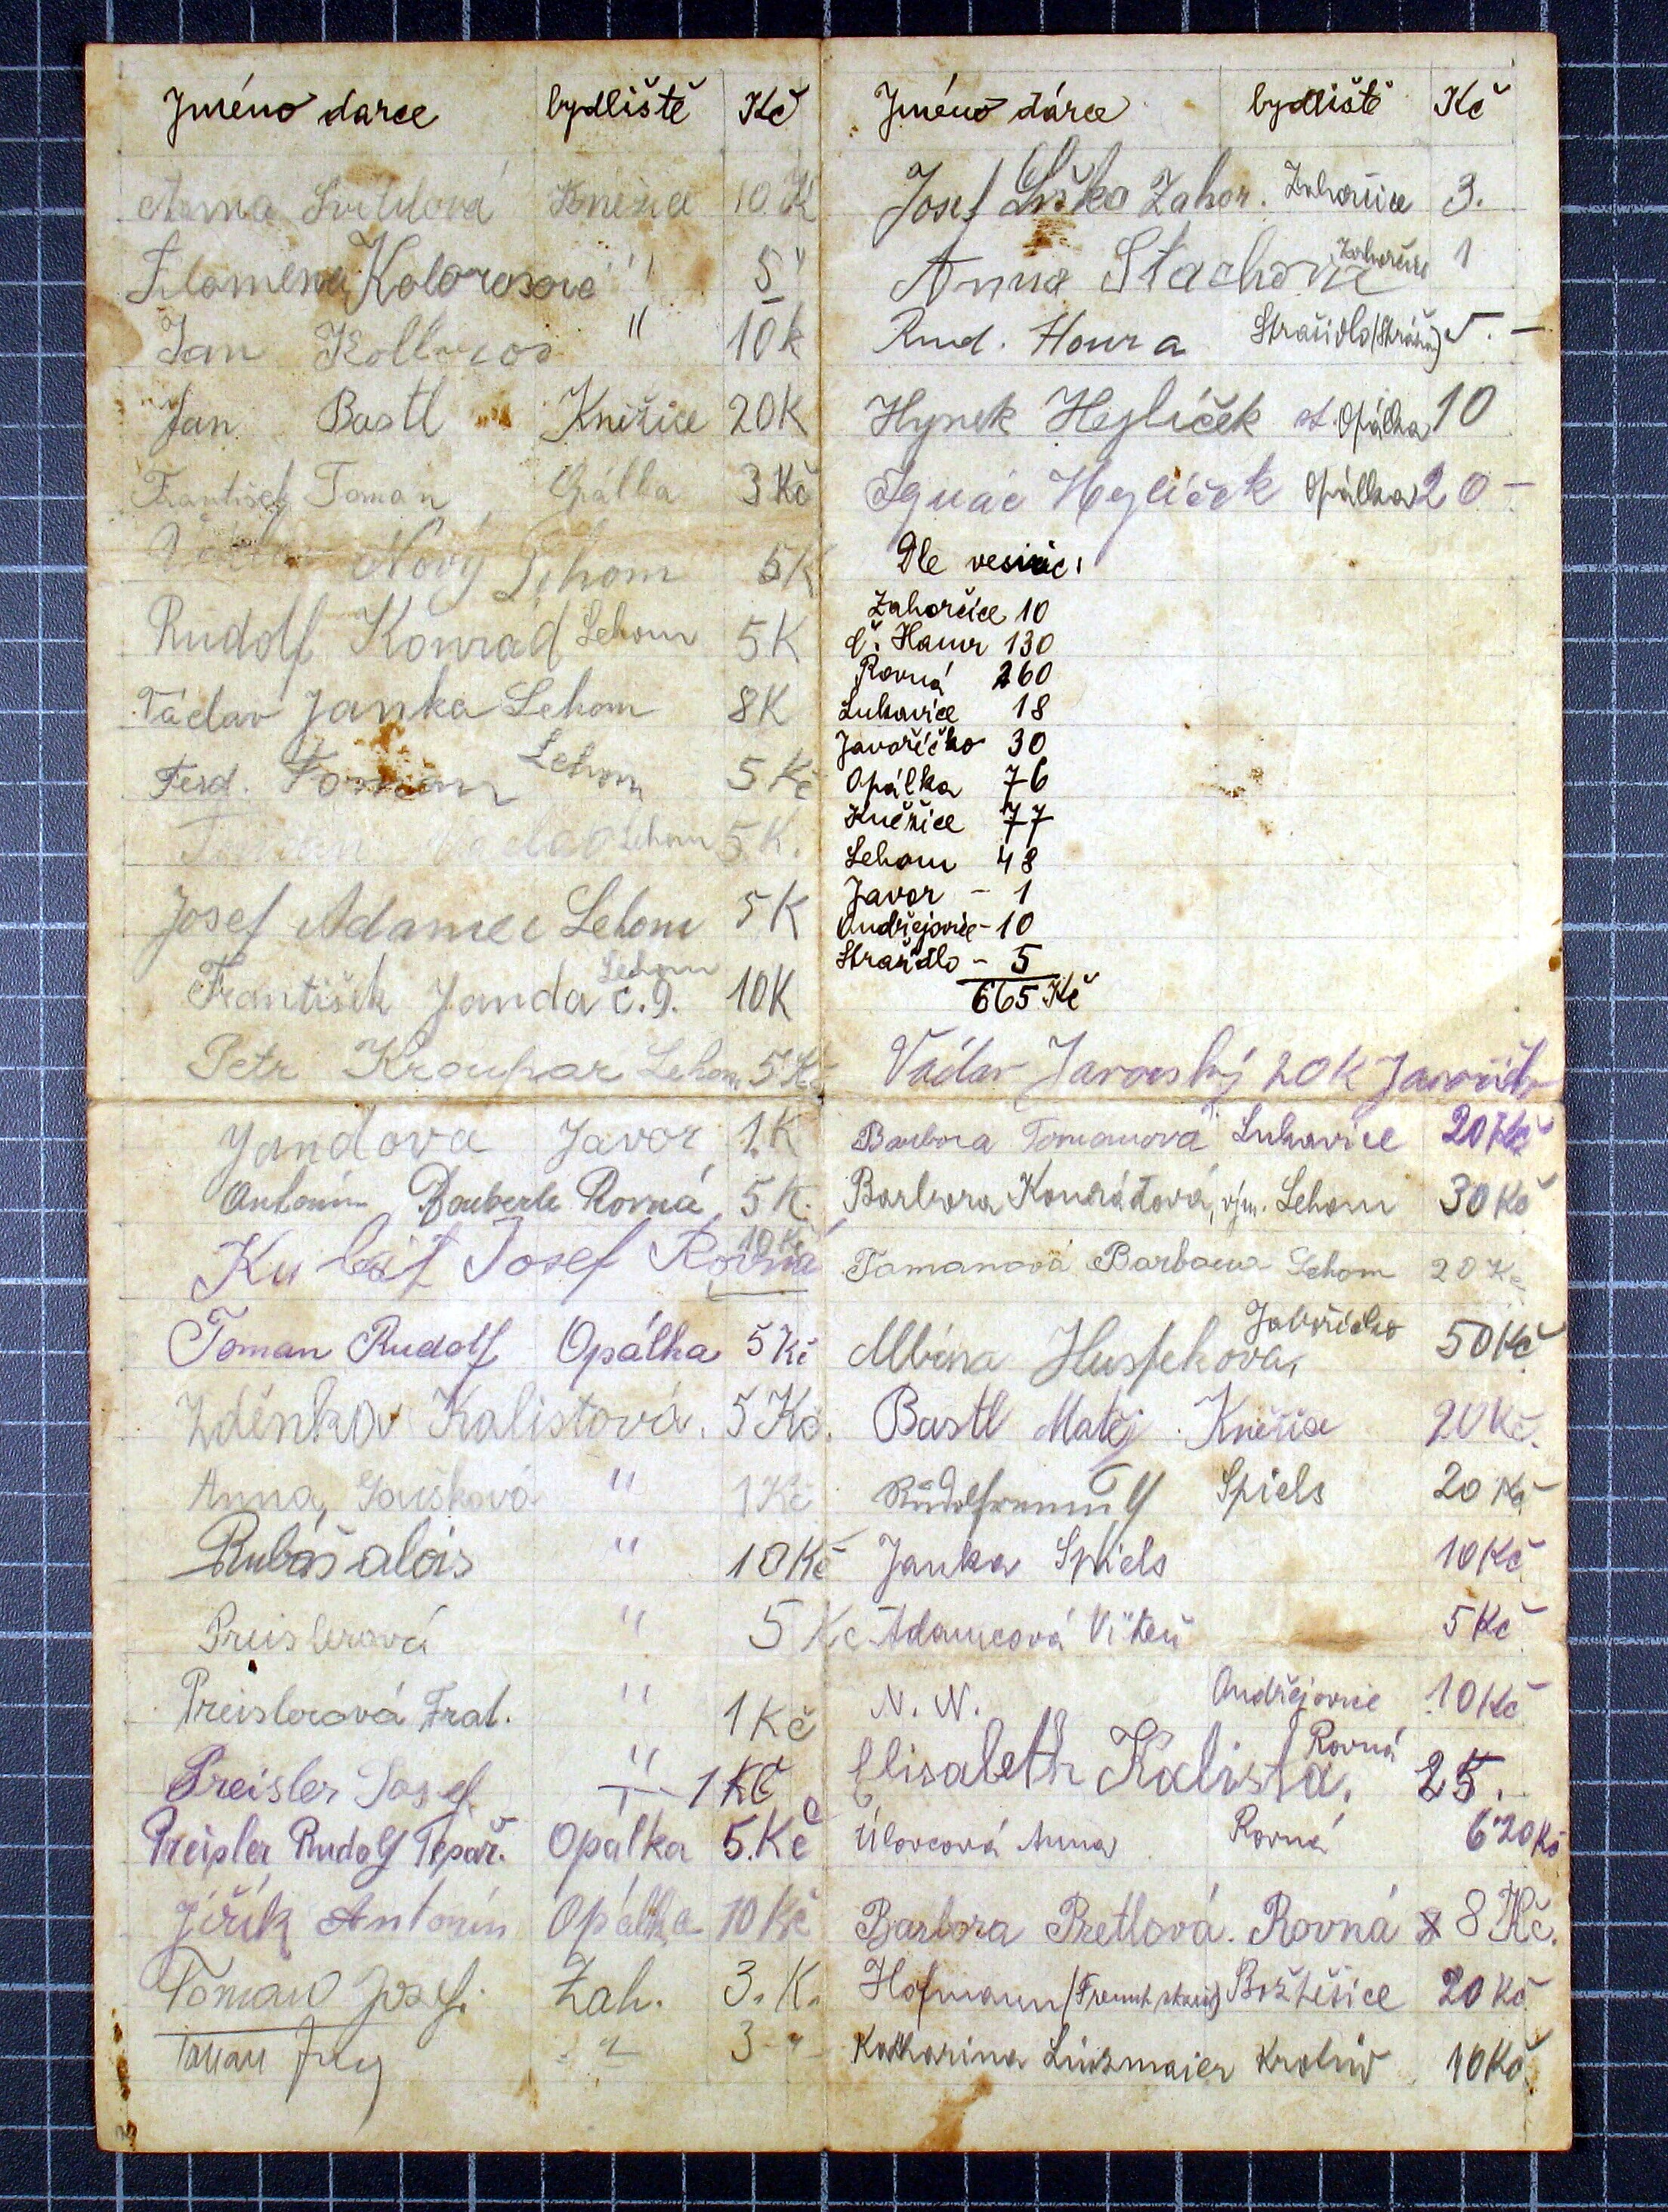 Jméno dárce bydliště Kč
Anna Svitilová Kněžice 10 K
Filomena Kolorosová " 5 "
Jan Kolloros " 10 K
Jan Bastl Kněžice 20 K
František Toman Opálka 3 Kč
Nový Lehom 5 K
Rudolf Konrád Lehom 5 K
Václav Janka Lehom 8 K
Ferd. Toman Lehom 5 Kč
Lehom 5 K.
Josef Adamec Lehom 5 K
František Janda Lehom č. 9. 10 K
Petr Kroupar Lehom 5 Kč
Jandova Javor 1 K
Antonín Rovná 5 K.
Josef Rovná 10 Kč
Toman Rudolf Opálka 5 Kč
Zdeňka Kalistová. 5 Kč.
Anna " 1 Kč
Rubáš alois " 10 Kč
Preislerová " 5 Kč
Preislerová Frat. " 1 Kč
Preisler Josef " 1 Kč
Preisler Rudolf Opálka 5 Kč
Jiřík Antonín Opálka 10 Kč
Toman Josef. Zah. 3. K.
Toman " 3 "
Jméno dárce bydliště Kč
Josef Liška Zahor. Zahorčice 3.
Anna Stachova Zahorčice 1
Rud. Houra Strašidlo 5. –
Hynek Hejlíček st. Opálka 10
Ignác Hejlíček Opálka 20 –
Dle vesnic:
Zahorčice 10
č. Hamr 130
Rovná 260
Lukavice 18
Javoříčko 30
Opálka 76
Kněžice 77
Lehom 48
Javor – 1
Ondřejovice – 10
Strašidlo – 5
665 Kč
Václav Javorský 20 K
Barbora Tomanová Lukavice 20 Kč
Barbora Konrátová, vým. Lehom 30 Kč
Tomanová Barbora Lehom 20 Kč
Albina Javoříčko 50 Kč
Bastl Matěj Kněžice 20 Kč.
Spiels 20 Kč
Janka Spiels 10 Kč
Adamcová Víteň 5 Kč
N. N. Ondřejovice 10 Kč
Elisabeth Kalista. Rovná 25.
Úlovcová Anna Rovná 6·20 Kč
Barbora Pretlová. Rovná 8 Kč.
Hofmann Božtěšice 20 Kč
Katharina Linzmaier 10 Kč